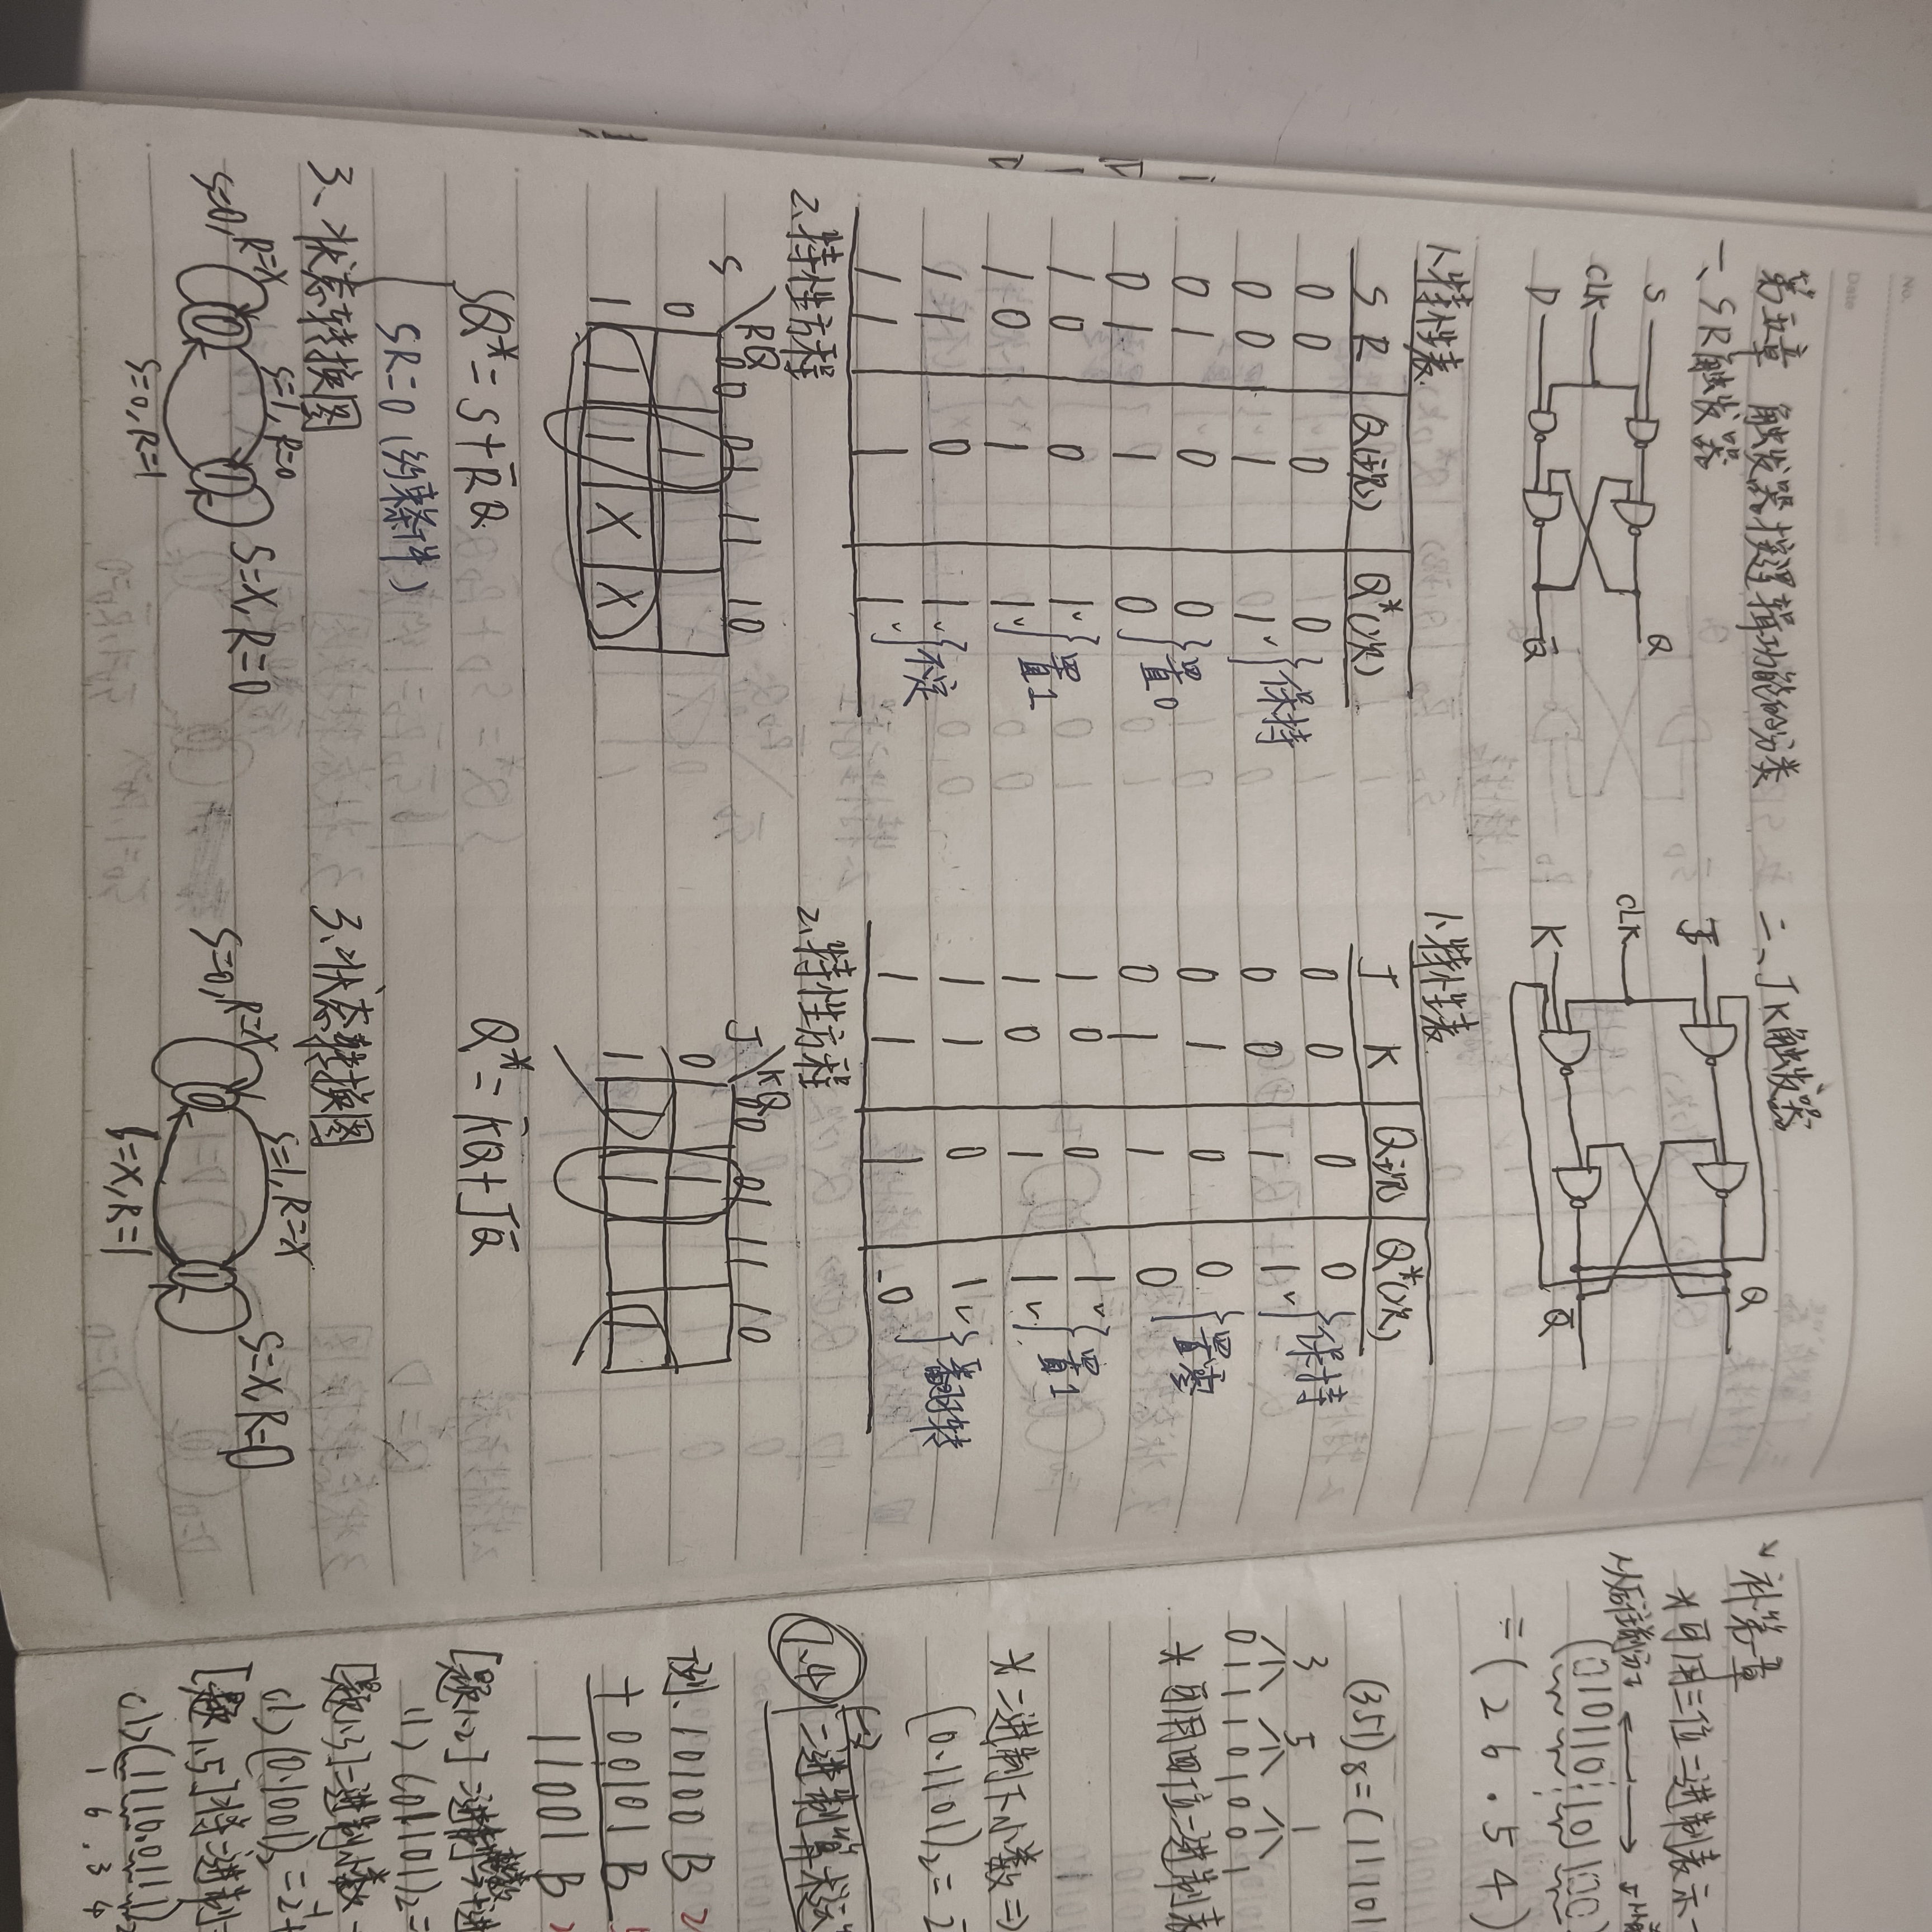 No.
Date
第五章 触发器按逻辑功能的分类
一、SR触发器
S
Q
CLK
D
Q̅
1、特性表
S R Q(现) Q*(次)
0 0 0 0
0 0 1 1 保持
0 1 0 0
0 1 1 0 置0
1 0 0 1
1 0 1 1 置1
1 1 0 1
1 1 1 1 不定
2、特性方程
S RQ 00 01 11 10
0 1
1 1 1 X X
Q*=S+R̅Q
SR=0(约束条件)
3、状态转换图
S=1,R=0
S=0,R=X 0 1 S=X,R=0
S=0,R=1
二、JK触发器
J
Q
CLK
K
Q̅
1、特性表
J K Q现 Q*(次)
0 0 0 0
0 0 1 1 保持
0 1 0 0
0 1 1 0 置零
1 0 0 1
1 0 1 1 置1
1 1 0 1
1 1 1 0 翻转
2、特性方程
J KQ 00 01 11 10
0 1
1 1 1 1
Q*=K̅Q+JQ̅
3、状态转换图
S=1,R=X
S=0,R=X 0 1 S=X,R=0
S=X,R=1
补第一章
*可用三位二进制表示一
从后往前分
(010110.101100)
=(26.54)
(351)8=(11101
3 5 1
011101001
*可用四位二进制表
*二进制下小数⇒
(0.1101)2=2
1.4 二进制算术运算
例、10100B
+00101B
11001B
[题1.2]二进制整数→十进
(1)(01101)2=
[题1.3]二进制小数→
(1)(0.1001)2=2⁻¹+
[题1.5]将二进制
(1)(1110.0111)2
1 6 . 3 4